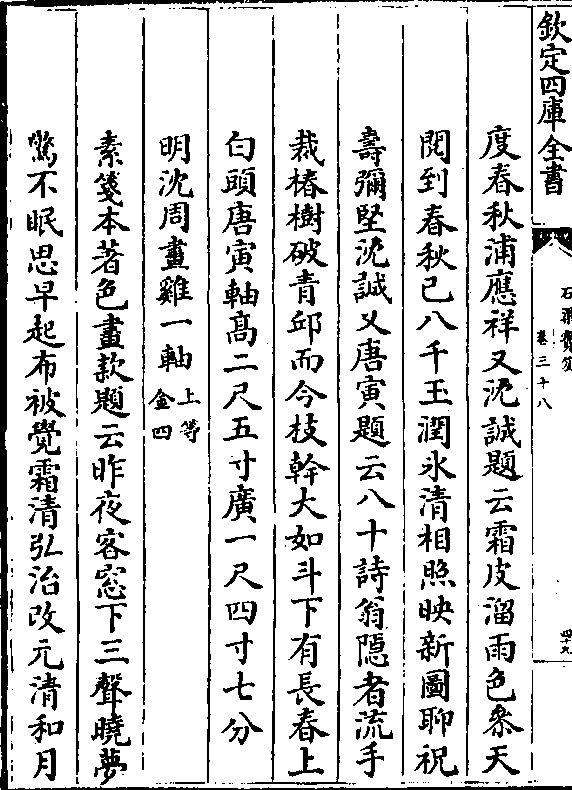 欽定四庫全書
石渠寶笈
卷三十八
四十九
度春秋浦應祥又沈誠題云霜皮溜雨色參天
閱到春秋已八千玉潤氷清相照映新圖聊祝
壽彌堅沈誠又唐寅題云八十詩翁隠者流手
栽椿樹破青邱而今枝幹大如斗下有長春上
白頭唐寅軸髙二尺五寸廣一尺四寸七分
明沈周畫雞一軸上等
金四
素箋本著色畫款題云昨夜客窓下三聲曉夢
驚不眠思早起布被覺霜清弘治改元清和月